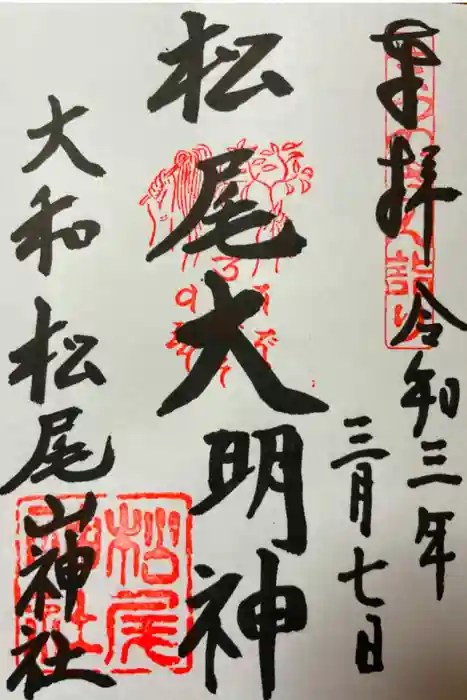 奉拝 令和三年
三月七日
松尾大明神
大和 松尾山神社
松尾